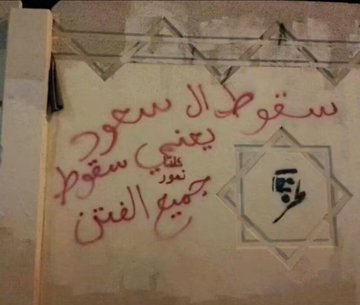 سقوط ال سعود
يعني سقوط
كلنا
نمور
جميع الفتن